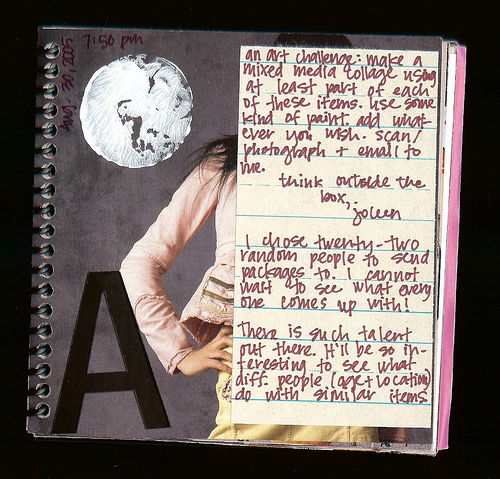 7:50 pm
May 30, 2005
A
an art challenge: make a
mixed media collage using
at least part of each
of these items. use some
kind of paint. add what-
ever you wish. scan/
photograph + email to
me.
think outside the
box,
joleen
I chose twenty-two
random people to send
packages to. I cannot
wait to see what every
one comes up with!
There is such talent
out there. It'll be so in-
teresting to see what
diff. people (age + location)
do with similar items